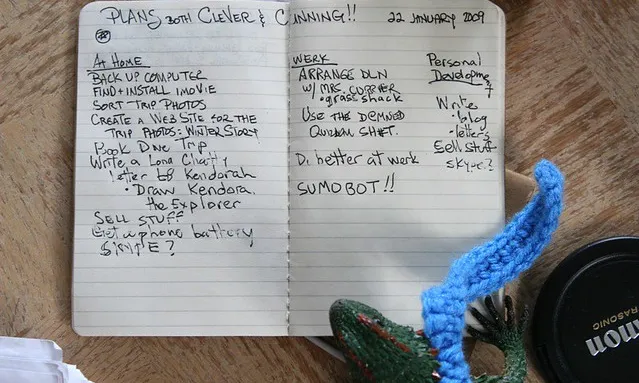 PLANS BOTH CLEVER & CUNNING!!
22 JANUARY 2009
AT HOME
BACK UP COMPUTER
FIND + INSTALL IMOVIE
SORT TRIP PHOTOS
CREATE A WEBSITE FOR THE
TRIP PHOTOS: WINTER STORY
Book Dive Trip
Write a Long Chatty
letter to Kendorah
• Draw Kendora,
the Explorer
SELL STUFF
Get a phone battery
SKYPE?
WERK
ARRANGE DLN
W/ MRS.
• grass shack
USE THE DEMNED
Do better at werk
SUMOBOT!!
Personal
Development
Write
• blog
• letters
Sell stuff
skype?
non
RASONIC